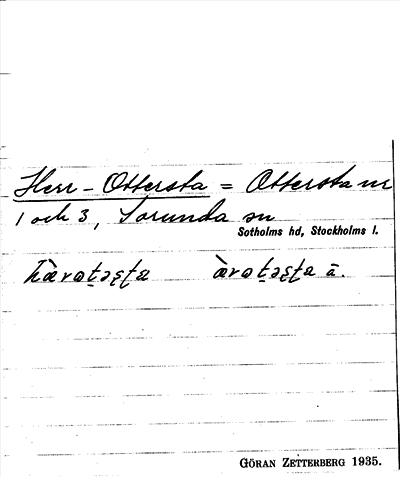 Herr-Ottersta = Ottersta nr
1 och 3, Sorunda sn
Sotholms hd, Stockholms l.
hærɷt̠əʂt̠a ærɷt̠əʂt̠a ā.
GÖRAN ZETTERBERG 1935.